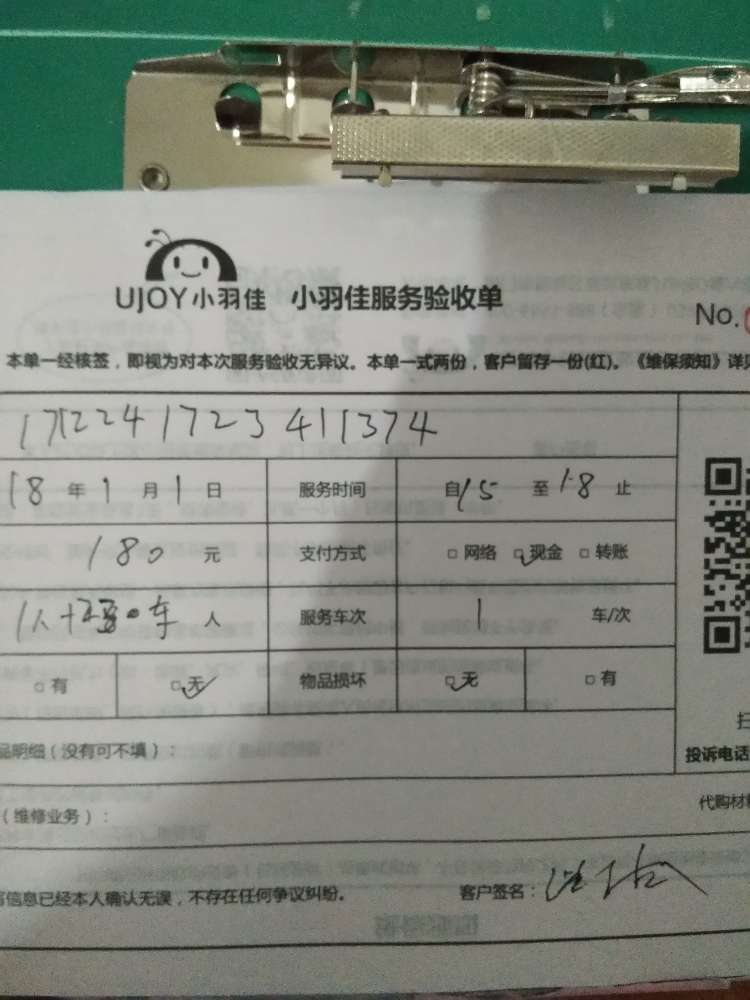 UJOY小羽佳 小羽佳服务验收单
No.
本单一经核签，即视为对本次服务验收无异议。本单一式两份，客户留存一份(红)。《维保须知》详见
1712241723411374
18年1月1日 服务时间 自15至18止
180元 支付方式 □网络 □现金 □转账
人 服务车次 1 车/次
□有 □无 物品损坏 □无 □有
品明细（没有可不填）：
投诉电话
（维修业务）：
代购材
信息已经本人确认无误，不存在任何争议纠纷。 客户签名：